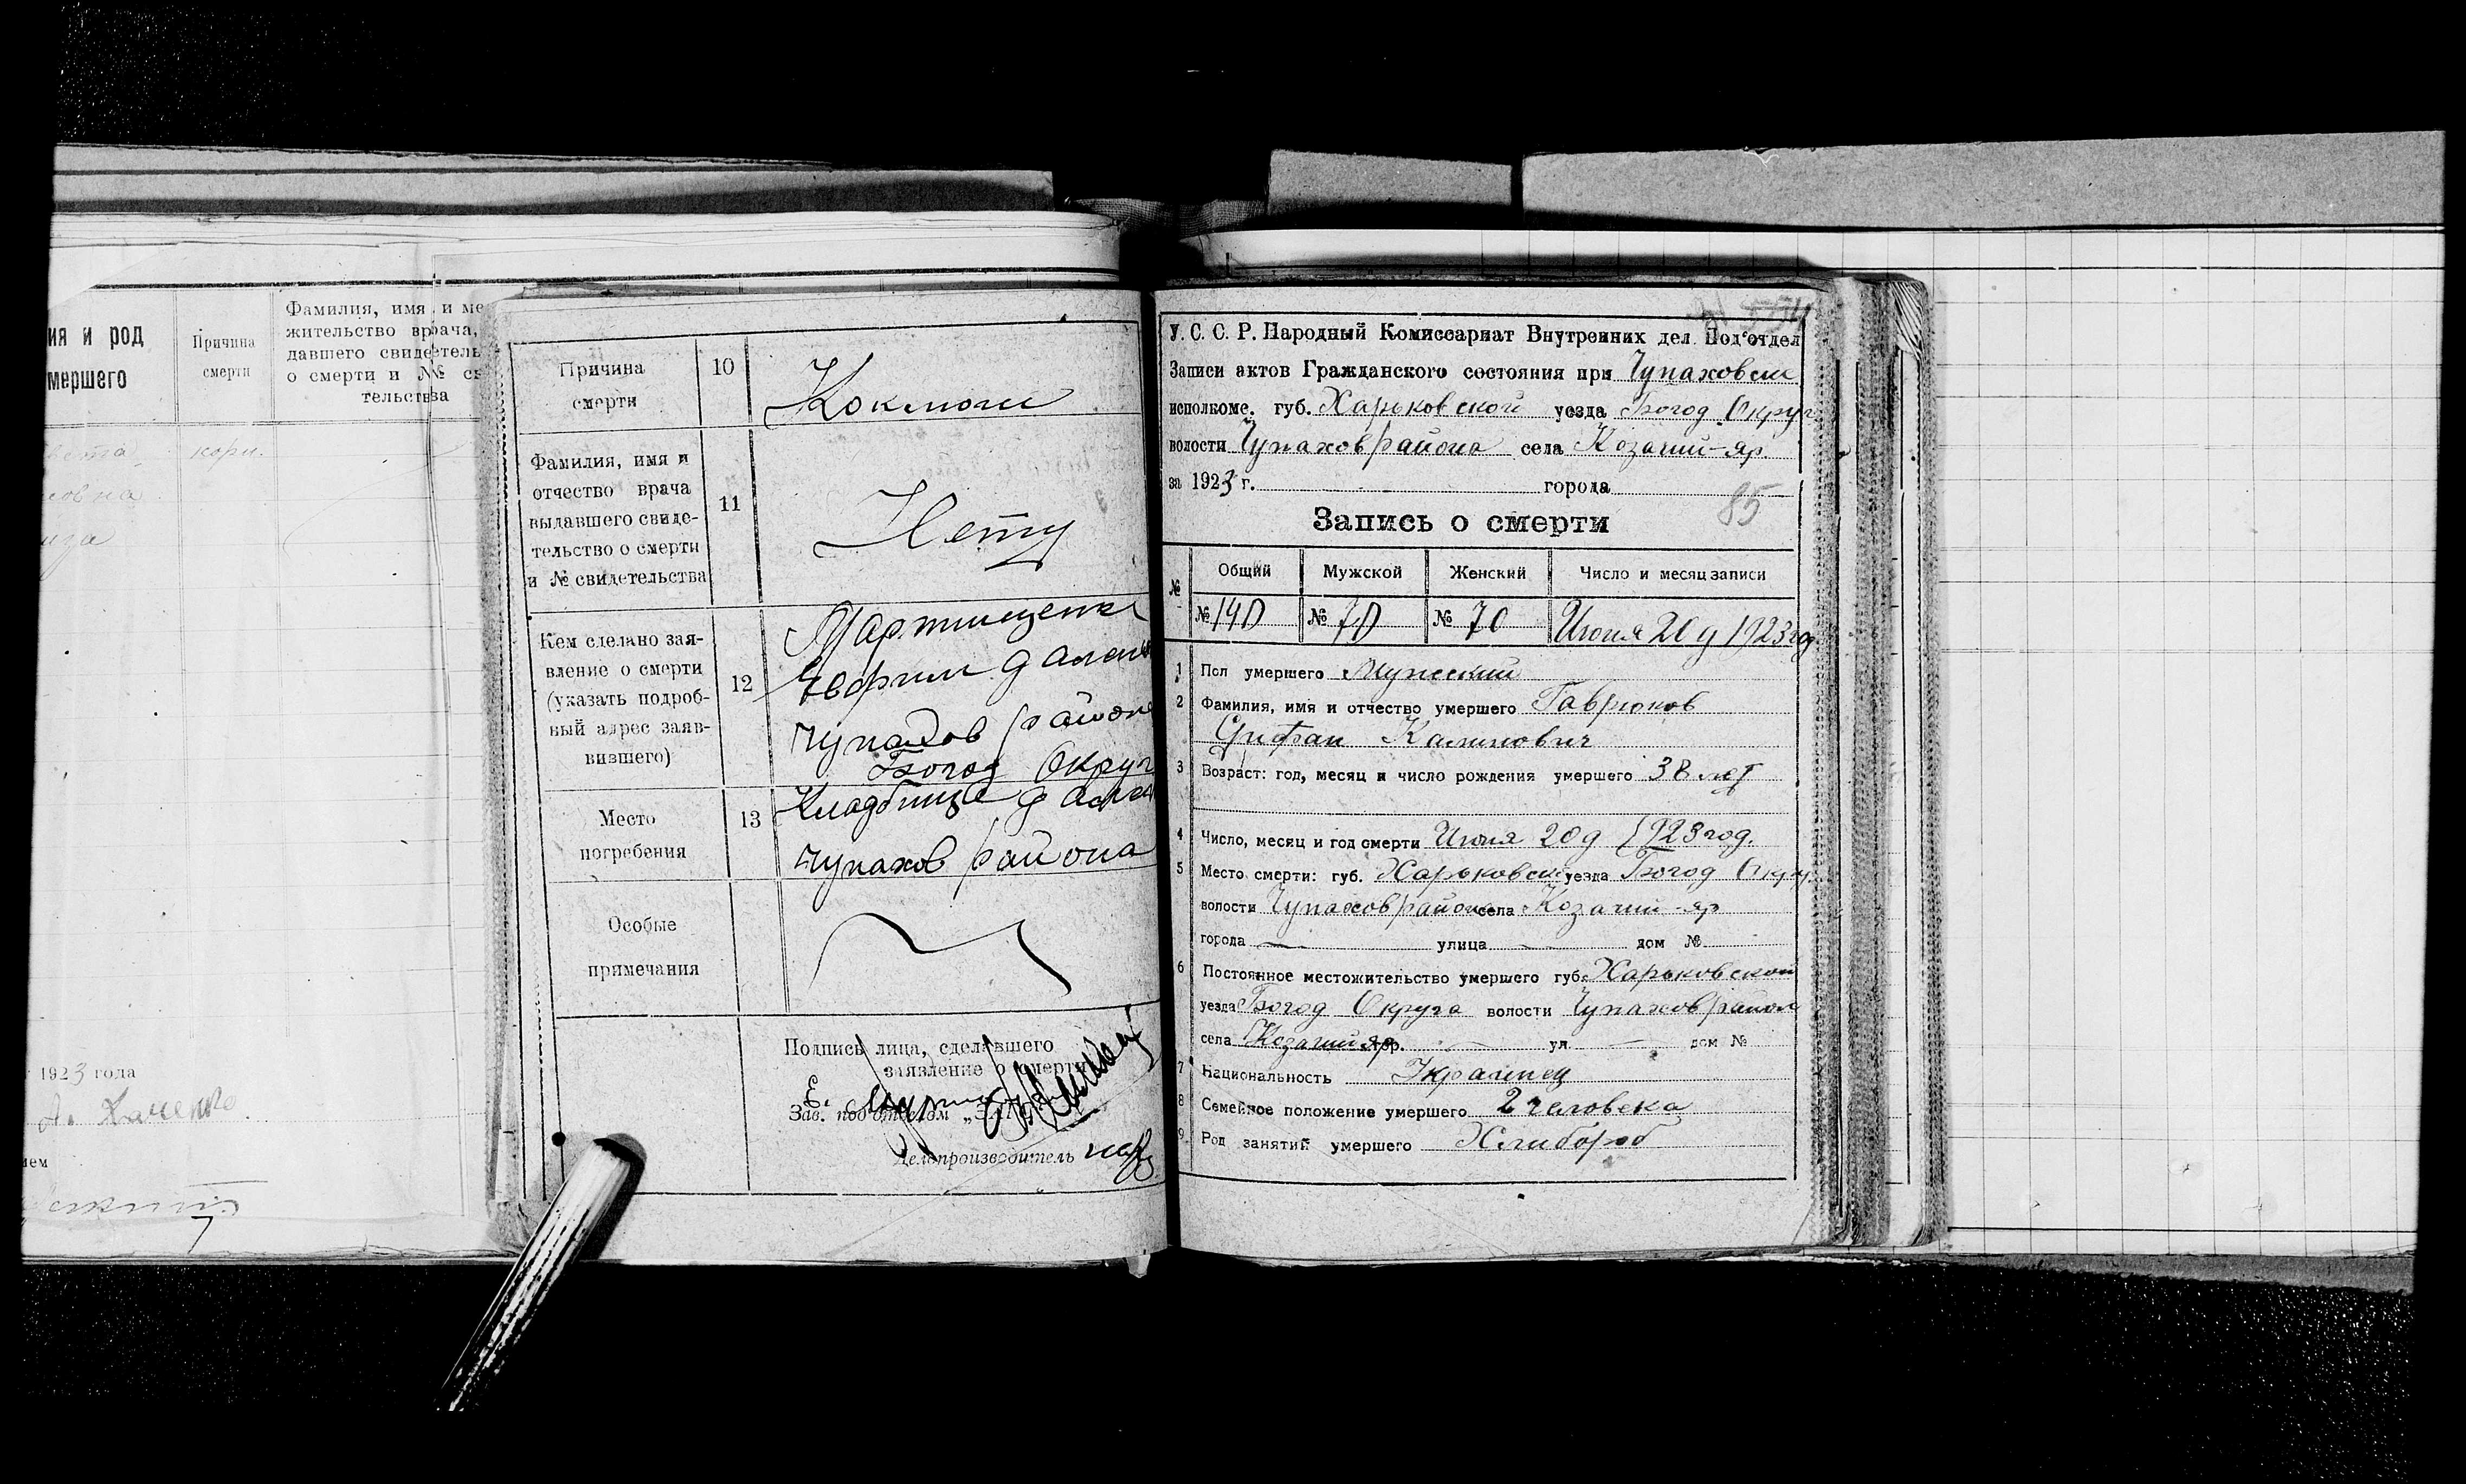 ия и род
мершего
Причина
смерти
Фамилия, имя и ме
жительство врача,
давшего свидетель
о смерти и № св
тельства
кори.
овна
1923 года
ем
Причина
смерти
10
Коклюш
Фамилия, имя и
отчество врача
выдавшего свиде-
тельство о смерти
и № свидетельства
11
Нету
Кем сделано зая-
вление о смерти
(указать подроб-
ный адрес заяв-
вившего)
12
Мартищенк
Ефрим
Чупахов района
Богод Округ
Место
погребения
13
Кладбище
Чупахов района
Особые
примечания
Подпись лица, сделавшего
заявление о смерти
Е.
Зав. под'отделом „ЗАГС"
Делопроизводитель
У. С. С. Р. Народный Комиссариат Внутренних дел Под'отдел
Записи актов Гражданского состояния при Чупаховском
исполкоме. губ. Харьковской уезда Богод Округ
волости Чупахов района села Козачий-яр.
за 1923 г. города
85
Запись о смерти
№ Общий Мужской Женский Число и месяц записи
№ 140 № 70 № 70 Июня 20 д 1923 год
1 Пол умершего Мужеский
2 Фамилия, имя и отчество умершего Гаврюков
Калинович
3 Возраст: год, месяц и число рождения умершего 38 лет
4 Число, месяц и год смерти Июня 20 д 1923 год.
5 Место смерти: губ. Харьковск уезда Богод Окр
волости Чупахов района села Козачий-яр
города — улица — дом №
6 Постоянное местожительство умершего губ. Харьковской
уезда Богод Округа волости Чупахов район
села Козачий яр гор. — ул. — дом №
7 Национальность Украинец
8 Семейное положение умершего 2 человека
9 Род занятий умершего Хлибороб